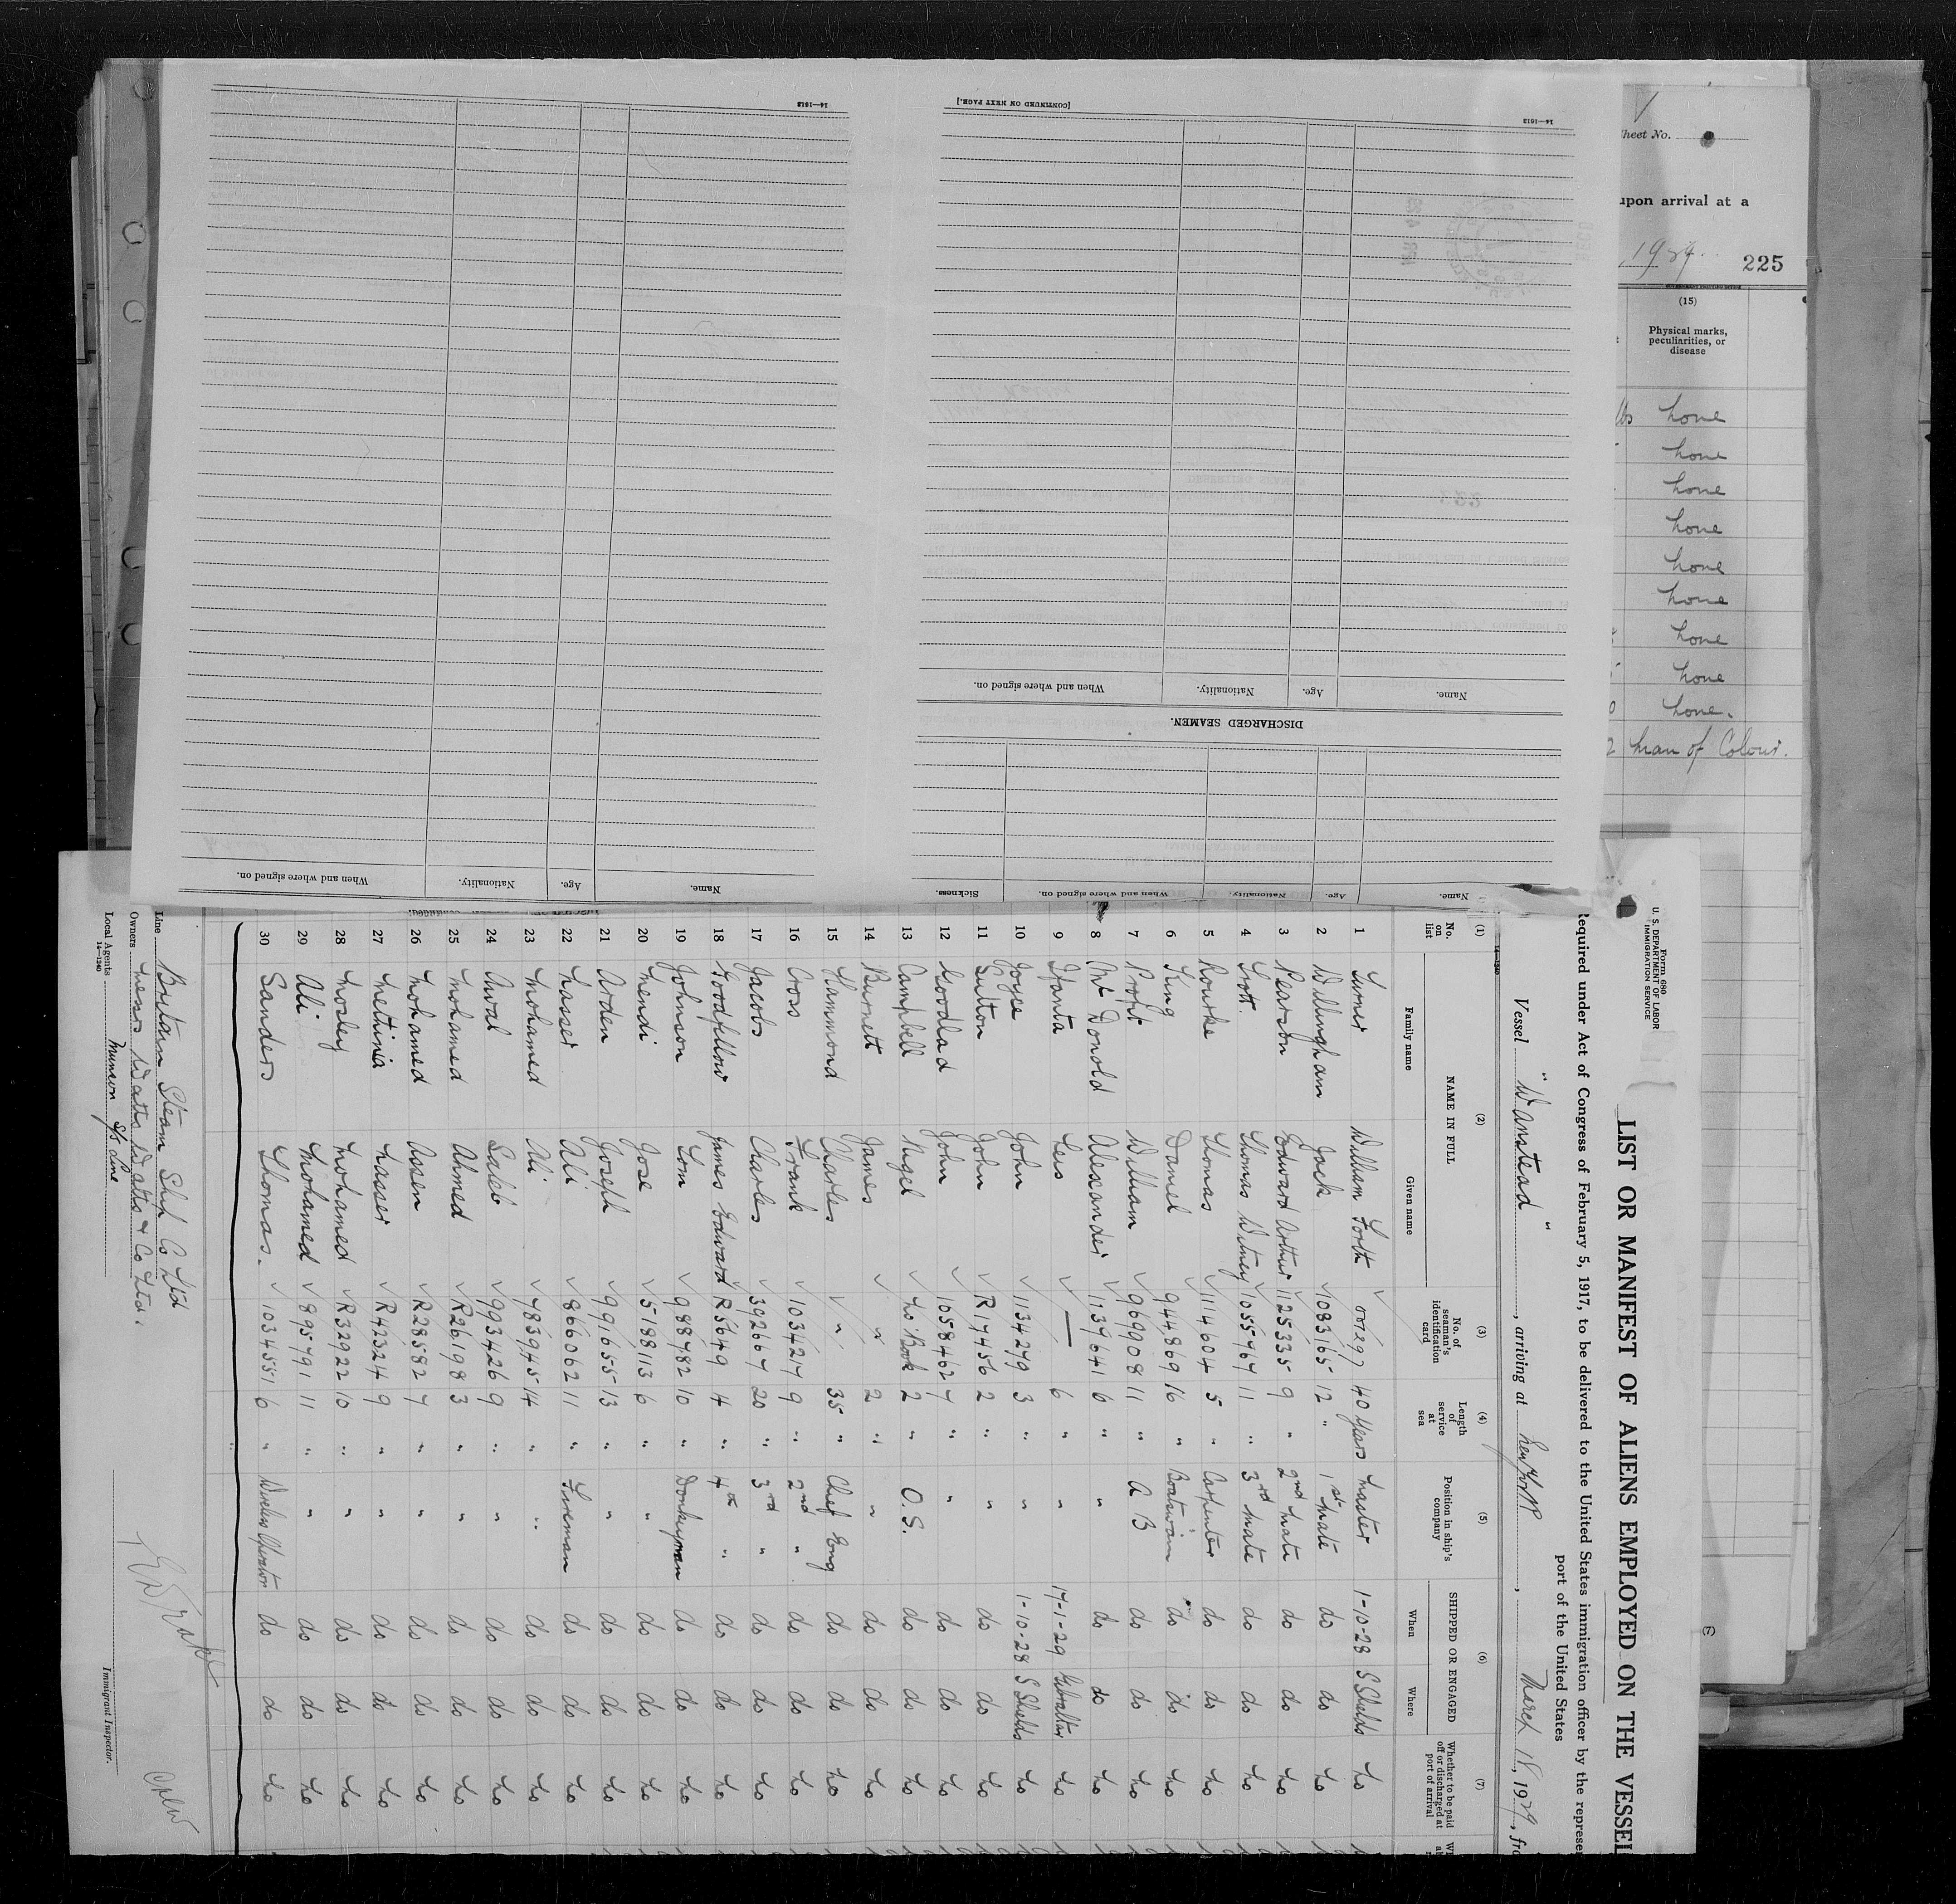 [CONTINUED ON NEXT PAGE.]
14—1613
14—1613
When and where signed on.
Nationality.
Age.
Name.
DISCHARGED SEAMEN.
When and where signed on.
Nationality.
Age.
Name.
Sickness.
When and where signed on.
Nationality.
Age.
Name.
Sheet No.
upon arrival at a
, 1929.
225
(15)
Physical marks,
peculiarities, or
disease
lbs none
none
none
none
none
none
none
none
none.
2 Man of Colour.
Form 680
U. S. DEPARTMENT OF LABOR
IMMIGRATION SERVICE
LIST OR MANIFEST OF ALIENS EMPLOYED ON THE VESSEL
required under Act of Congress of February 5, 1917, to be delivered to the United States immigration officer by the represe
port of the United States
Vessel "Wanstead", arriving at New York, March 18, 1929, fro
(1) (2) (3) (4) (5) (6) (7)
No. on list
NAME IN FULL
Family name
Given name
No. of seaman's identification card
Length of service at sea
Position in ship's company
SHIPPED OR ENGAGED
When
Where
Whether to be paid off or discharged at port of arrival
1 Turner William Forth 00te97 40 Years Master 1-10-28 S Shields No
2 Willingham Jack 1083165 12 " 1st Mate do do No
3 Pearson Edward Arthur 1125335 9 " 2nd Mate do do No
4 Scott. Thomas Witney 1055767 11 " 3rd Mate do do No
5 Rourke Thomas 1114604 5 " Carpenter do do No
6 King Daniel 944869 16 " Boatswain do do No
7 Profit William 969908 11 " A B do do No
8 McDonold Alexcander 1137641 6 " " do do No
9 Ifanta Luis — 6 " " 17-1-29 Gibraltar No
10 Joyce John 1134279 3 " " 1-10-28 S Shields No
11 Sutton John R17456 2 " " do do No
12 Goodlad John 1058462 7 " " do do No
13 Campbell Nigel No Book 2 " O.S. do do No
14 Burnett James " 2 " " do do No
15 Hammond Charles " 35 " Chief Eng do do No
16 Cross Frank 1034217 9 " 2nd " do do No
17 Jacobs Charles 392667 20 " 3rd " do do No
18 Goodfellow James Edward R5649 4 " 4th " do do No
19 Johnson Tom 988782 10 " Donkeyman do do No
20 Mendi Jose 5188113 6 " " do do No
21 Arden Joseph 991655 13 " " do do No
22 Nasser Ali 866062 11 " Fireman do do No
23 Mohamed Ali 783945 14 " " do do No
24 Awal Saleb 993426 9 " " do do No
25 Mohamed Ahmed R26198 3 " " do do No
26 Mohamed Assen R28582 7 " " do do No
27 Methinia Nasser R42324 9 " " do do No
28 Mosley Mohamed R32922 10 " " do do No
29 Ali Mohamed 895791 11 " " do do No
30 Sanders Thomas. 1034551 6 " Wireless Operator do do No
Line Britain Steam Ship Co Ltd
Owners Messrs Watts Watts & Co Ltd.
Local Agents Munson S/S Line
14—1240
Immigrant Inspector.
Crew
(7)